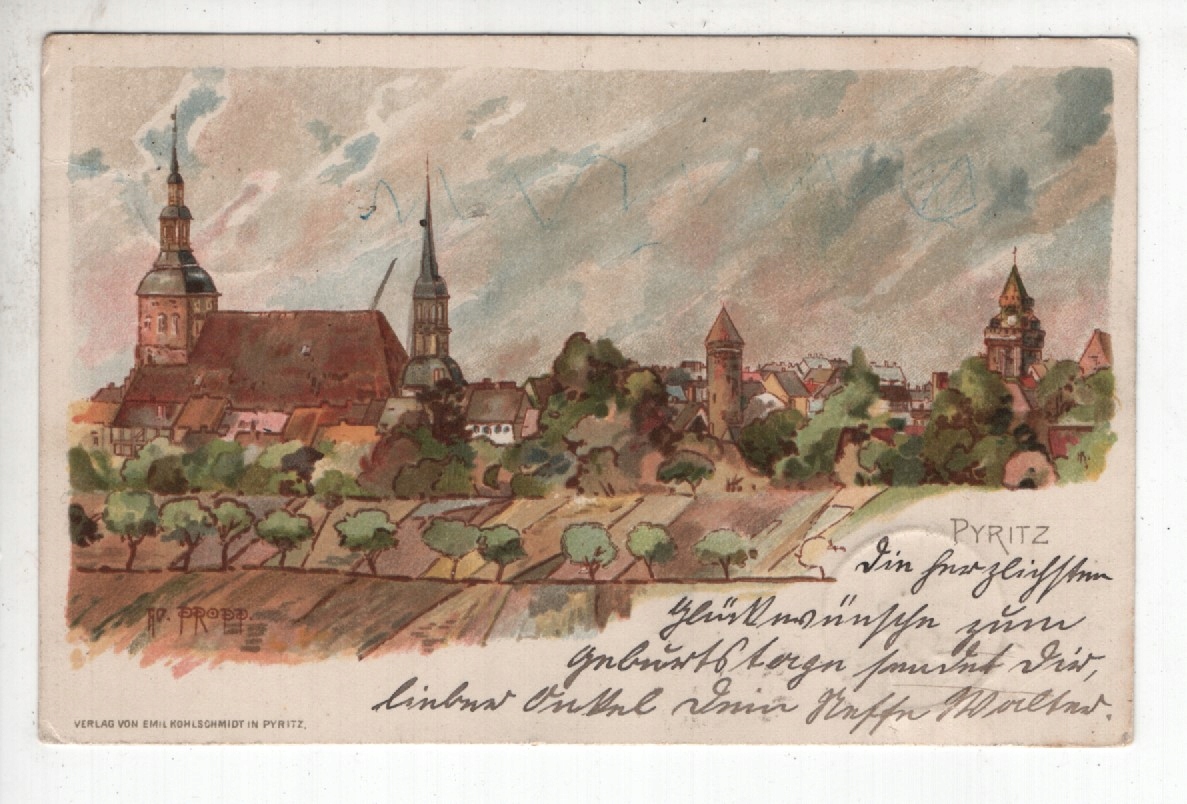 PYRITZ
Die herzlichsten
Glückwünsche zum
Geburtstage sendet Dir,
lieber Onkel Dein Neffe Walter.
AD. PROPP.
VERLAG VON EMIL KOHLSCHMIDT IN PYRITZ.